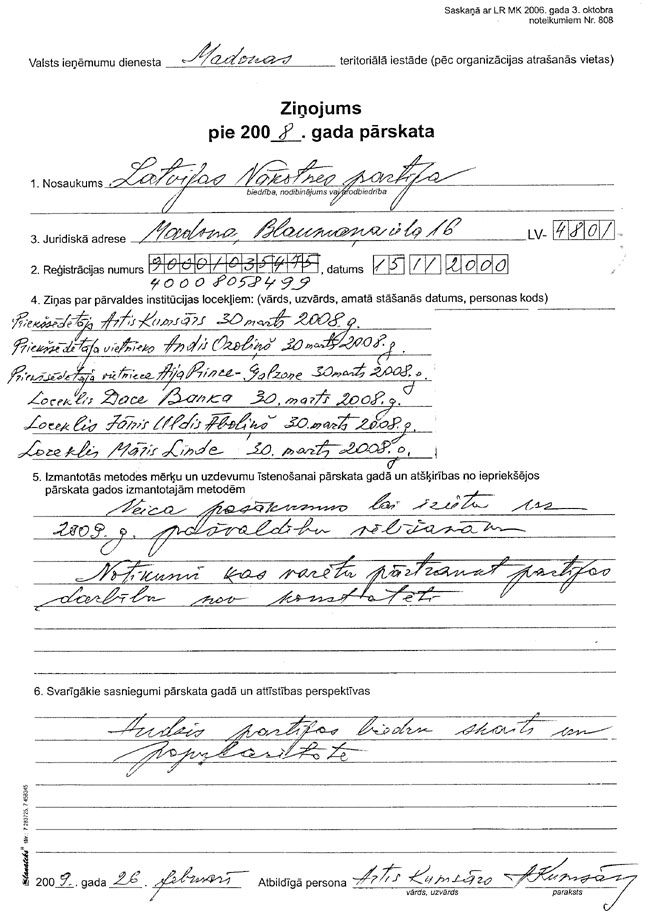 Saskaņā ar LR MK 2006. gada 3. oktobra
noteikumiem Nr. 808
Valsts ieņēmumu dienesta Madonas teritoriālā iestāde (pēc organizācijas atrašanās vietas)
Ziņojums
pie 2008. gada pārskata
1. Nosaukums Latvijas Nākotnes partija
biedrība, nodibinājums vai arodbiedrība
3. Juridiskā adrese Madona, Blaumaņa iela 16 LV- 4801
2. Reģistrācijas numurs 90001035475, datums 15 11 2000
40008058499
4. Ziņas par pārvaldes institūcijas locekļiem: (vārds, uzvārds, amatā stāšanās datums, personas kods)
Priekšsēdētājs Artis Kumsārs 30 marts 2008.g.
Priekšsēdētāja vietnieks Andis Ozoliņš 30 marts 2008.g.
Priekšsēdētāja vietniece Aija Prince-Galzone 30 marts 2008.g.
Loceklis Dace Banka 30. marts 2008.g.
Loceklis Jānis Uldis Āboliņš 30. marts 2008.g.
Loceklis Māris Linde 30. marts 2008.g.
5. Izmantotās metodes mērķu un uzdevumu īstenošanai pārskata gadā un atšķirības no iepriekšējos
pārskata gados izmantotajām metodēm
Veica pasākumus lai izietu uz
2009.g. pašvaldību vēlēšanām
Notikumi kas varētu pārtraukt partijas
darbību nav konstatēti
6. Svarīgākie sasniegumi pārskata gadā un attīstības perspektīvas
Audzis partijas biedru skaits un
popularitāte
2009. gada 26. februārī Atbildīgā persona Artis Kumsārs AKumsārs
vārds, uzvārds paraksts